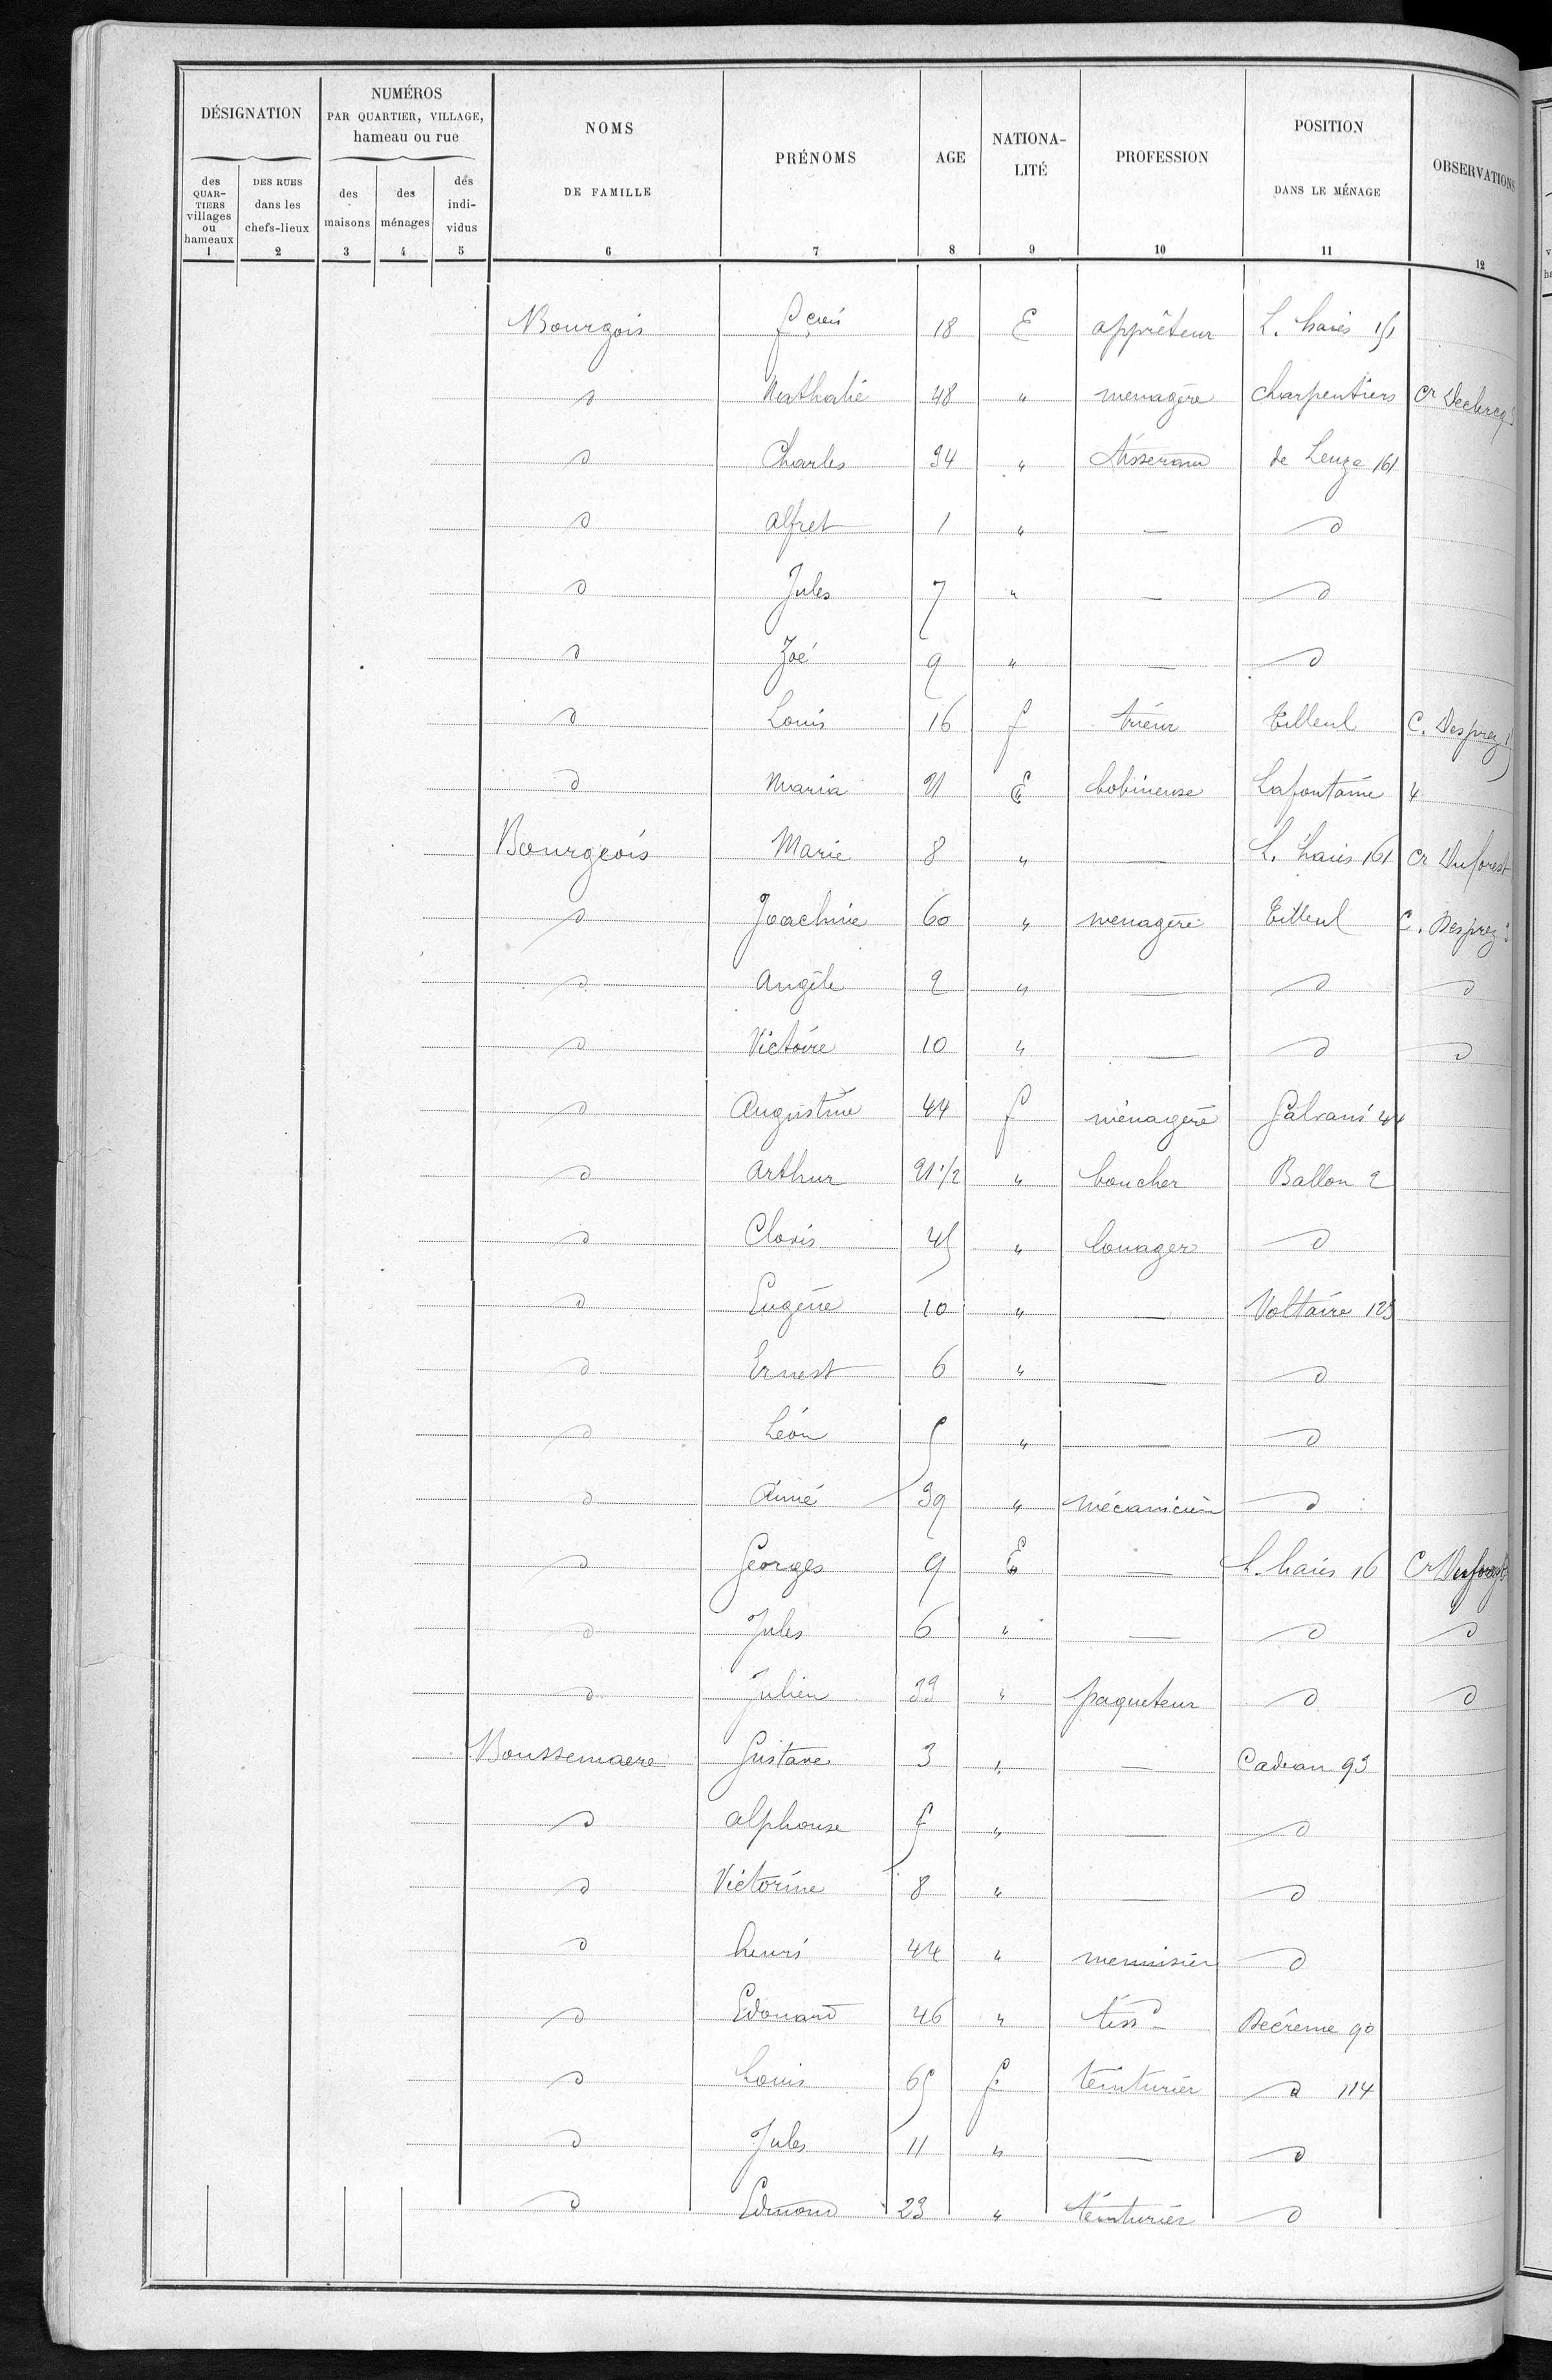 DÉSIGNATION NUMÉROS PAR QUARTIER, VILLAGE, hameau ou rue NOMS DE FAMILLE PRÉNOMS AGE NATIONA-LITÉ PROFESSION POSITION DANS LE MÉNAGE OBSERVATIONS
des QUAR-TIERS villages ou hameaux DES RUES dans les chefs-lieux des maisons des ménages des indi-vidus
1 2 3 4 5 6 7 8 9 10 11 12
Bourgois fçois 18 E apprêteur L. haies 151
d Nathalie 48 " menagère Charpentiers Cr Declercq
d Charles 34 " tisserand de Leuze 161
d alfret 1 " — d
d Jules 7 " — d
d Zoé 9 " — d
d Louis 16 f trieur Tilleul C. Desprez
d Maria 21 E bobineuse Lafontaine 4
Bourgeois Marie 8 " — L. haies 161 Cr Duforest
d Joachine 60 " menagère Tilleul C. Desprez
d Angèle 2 " — d d
d Victoire 10 " — d d
d Augustine 44 f ménagère Galvani 44
d Arthur 21 1/2 " boucher Ballon 2
d Clovis 45 " louager d
d Eugène 10 " — Voltaire 123
d Ernest 6 " — d
d Léon 5 " — d
d Aimé 39 " mécanicien d
d Georges 9 E — L. haies 16 Cr Duforest
d Jules 6 " — d d
d Julien 33 " paqueteur d d
Boussemaere Gustave 3 " — Cadran 93
d alphonse 5 " — d
d Victorine 8 " — d
d henri 44 " menuisier d
d Edouard 46 " tissd Decrême 90
d Louis 65 f teinturier d 114
d Jules 11 " — d
d Edmond 23 " teinturier d